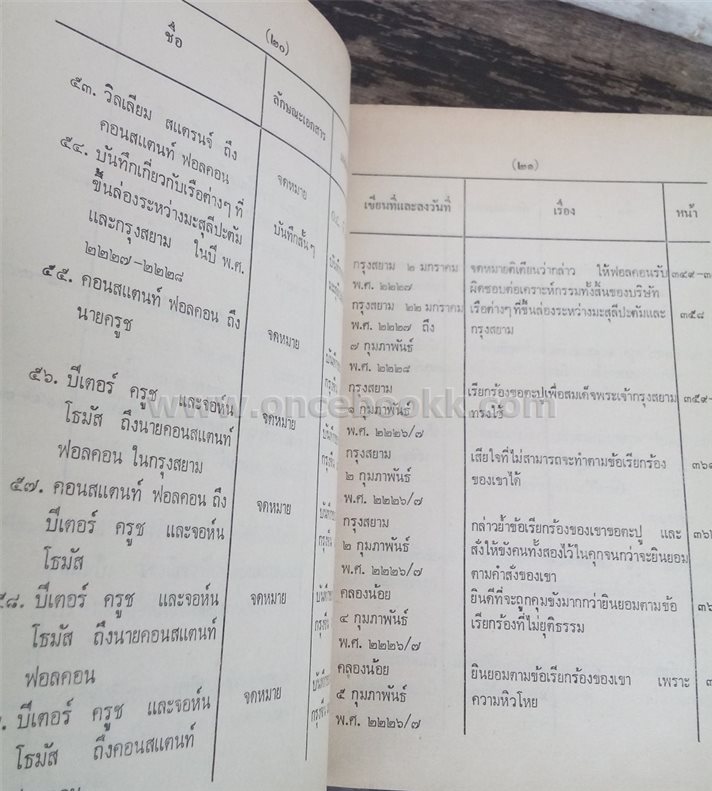 (๒๐)
ชื่อ
ลักษณะเอกสาร
๕๓. วิลเลียม สแตรนจ์ ถึง
คอนสแตนท์ ฟอลคอน
จดหมาย
๕๔. บันทึกเกี่ยวกับเรือต่างๆ ที่
ขึ้นล่องระหว่างมะสุลีปะตัม
และกรุงสยาม ในปี พ.ศ.
๒๒๒๗-๒๒๒๘
บันทึกสั้น ๆ
๕๕. คอนสแตนท์ ฟอลคอน ถึง
นายครูช
จดหมาย
๕๖. ปีเตอร์ ครูช และจอห์น
โธมัส ถึงนายคอนสแตนท์
ฟอลคอน ในกรุงสยาม
จดหมาย
๕๗. คอนสแตนท์ ฟอลคอน ถึง
ปีเตอร์ ครูช และจอห์น
โธมัส
จดหมาย
๕๘. ปีเตอร์ ครูช และจอห์น
โธมัส ถึงนายคอนสแตนท์
ฟอลคอน
จดหมาย
ปีเตอร์ ครูช และจอห์น
โธมัส ถึงคอนสแตนท์
จดหมาย
(๒๑)
เขียนที่และลงวันที่
เรื่อง
หน้า
กรุงสยาม ๒ มกราคม
พ.ศ. ๒๒๒๗
จดหมายติเตียนว่ากล่าว ให้ฟอลคอนรับ
ผิดชอบต่อเคราะห์กรรมทั้งสิ้นของบริษัท
๓๔๙-๓
กรุงสยาม ๒๒ มกราคม
พ.ศ. ๒๒๒๗ ถึง
๗ กุมภาพันธ์
พ.ศ. ๒๒๒๘
เรือต่างๆ ที่ขึ้นล่องระหว่างมะสุลีปะตัมและ
กรุงสยาม
๓๕๘
กรุงสยาม
๑ กุมภาพันธ์
พ.ศ. ๒๒๒๖/๗
เรียกร้องขอตะปูเพื่อสมเด็จพระเจ้ากรุงสยาม
ทรงใช้
๓๕๙-
กรุงสยาม
๒ กุมภาพันธ์
พ.ศ. ๒๒๒๖/๗
เสียใจที่ไม่สามารถจะทำตามข้อเรียกร้อง
ของเขาได้
กรุงสยาม
๒ กุมภาพันธ์
พ.ศ. ๒๒๒๖/๗
กล่าวย้ำข้อเรียกร้องของเขาขอตะปู และ
สั่งให้ขังคนทั้งสองไว้ในคุกจนกว่าจะยินยอม
ตามคำสั่งของเขา
คลองน้อย
๔ กุมภาพันธ์
พ.ศ. ๒๒๒๖/๗
ยินดีที่จะถูกคุมขังมากกว่ายินยอมตามข้อ
เรียกร้องที่ไม่ยุติธรรม
คลองน้อย
๕ กุมภาพันธ์
พ.ศ. ๒๒๒๖/๗
ยินยอมตามข้อเรียกร้องของเขา เพราะ
ความหิวโหย
www.oncebookk.com